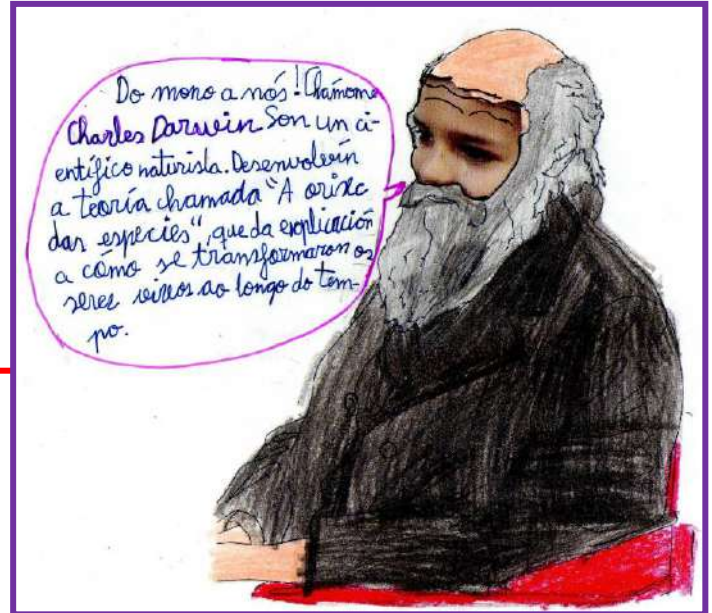 Do mono a nós! Chámome
Charles Darwin. Son un ci-
entífico naturista. Desenvolvín
a teoría chamada "A orixe
das especies", que da explicación
a cómo se transformaron os
seres vivos ao longo do tem-
po.